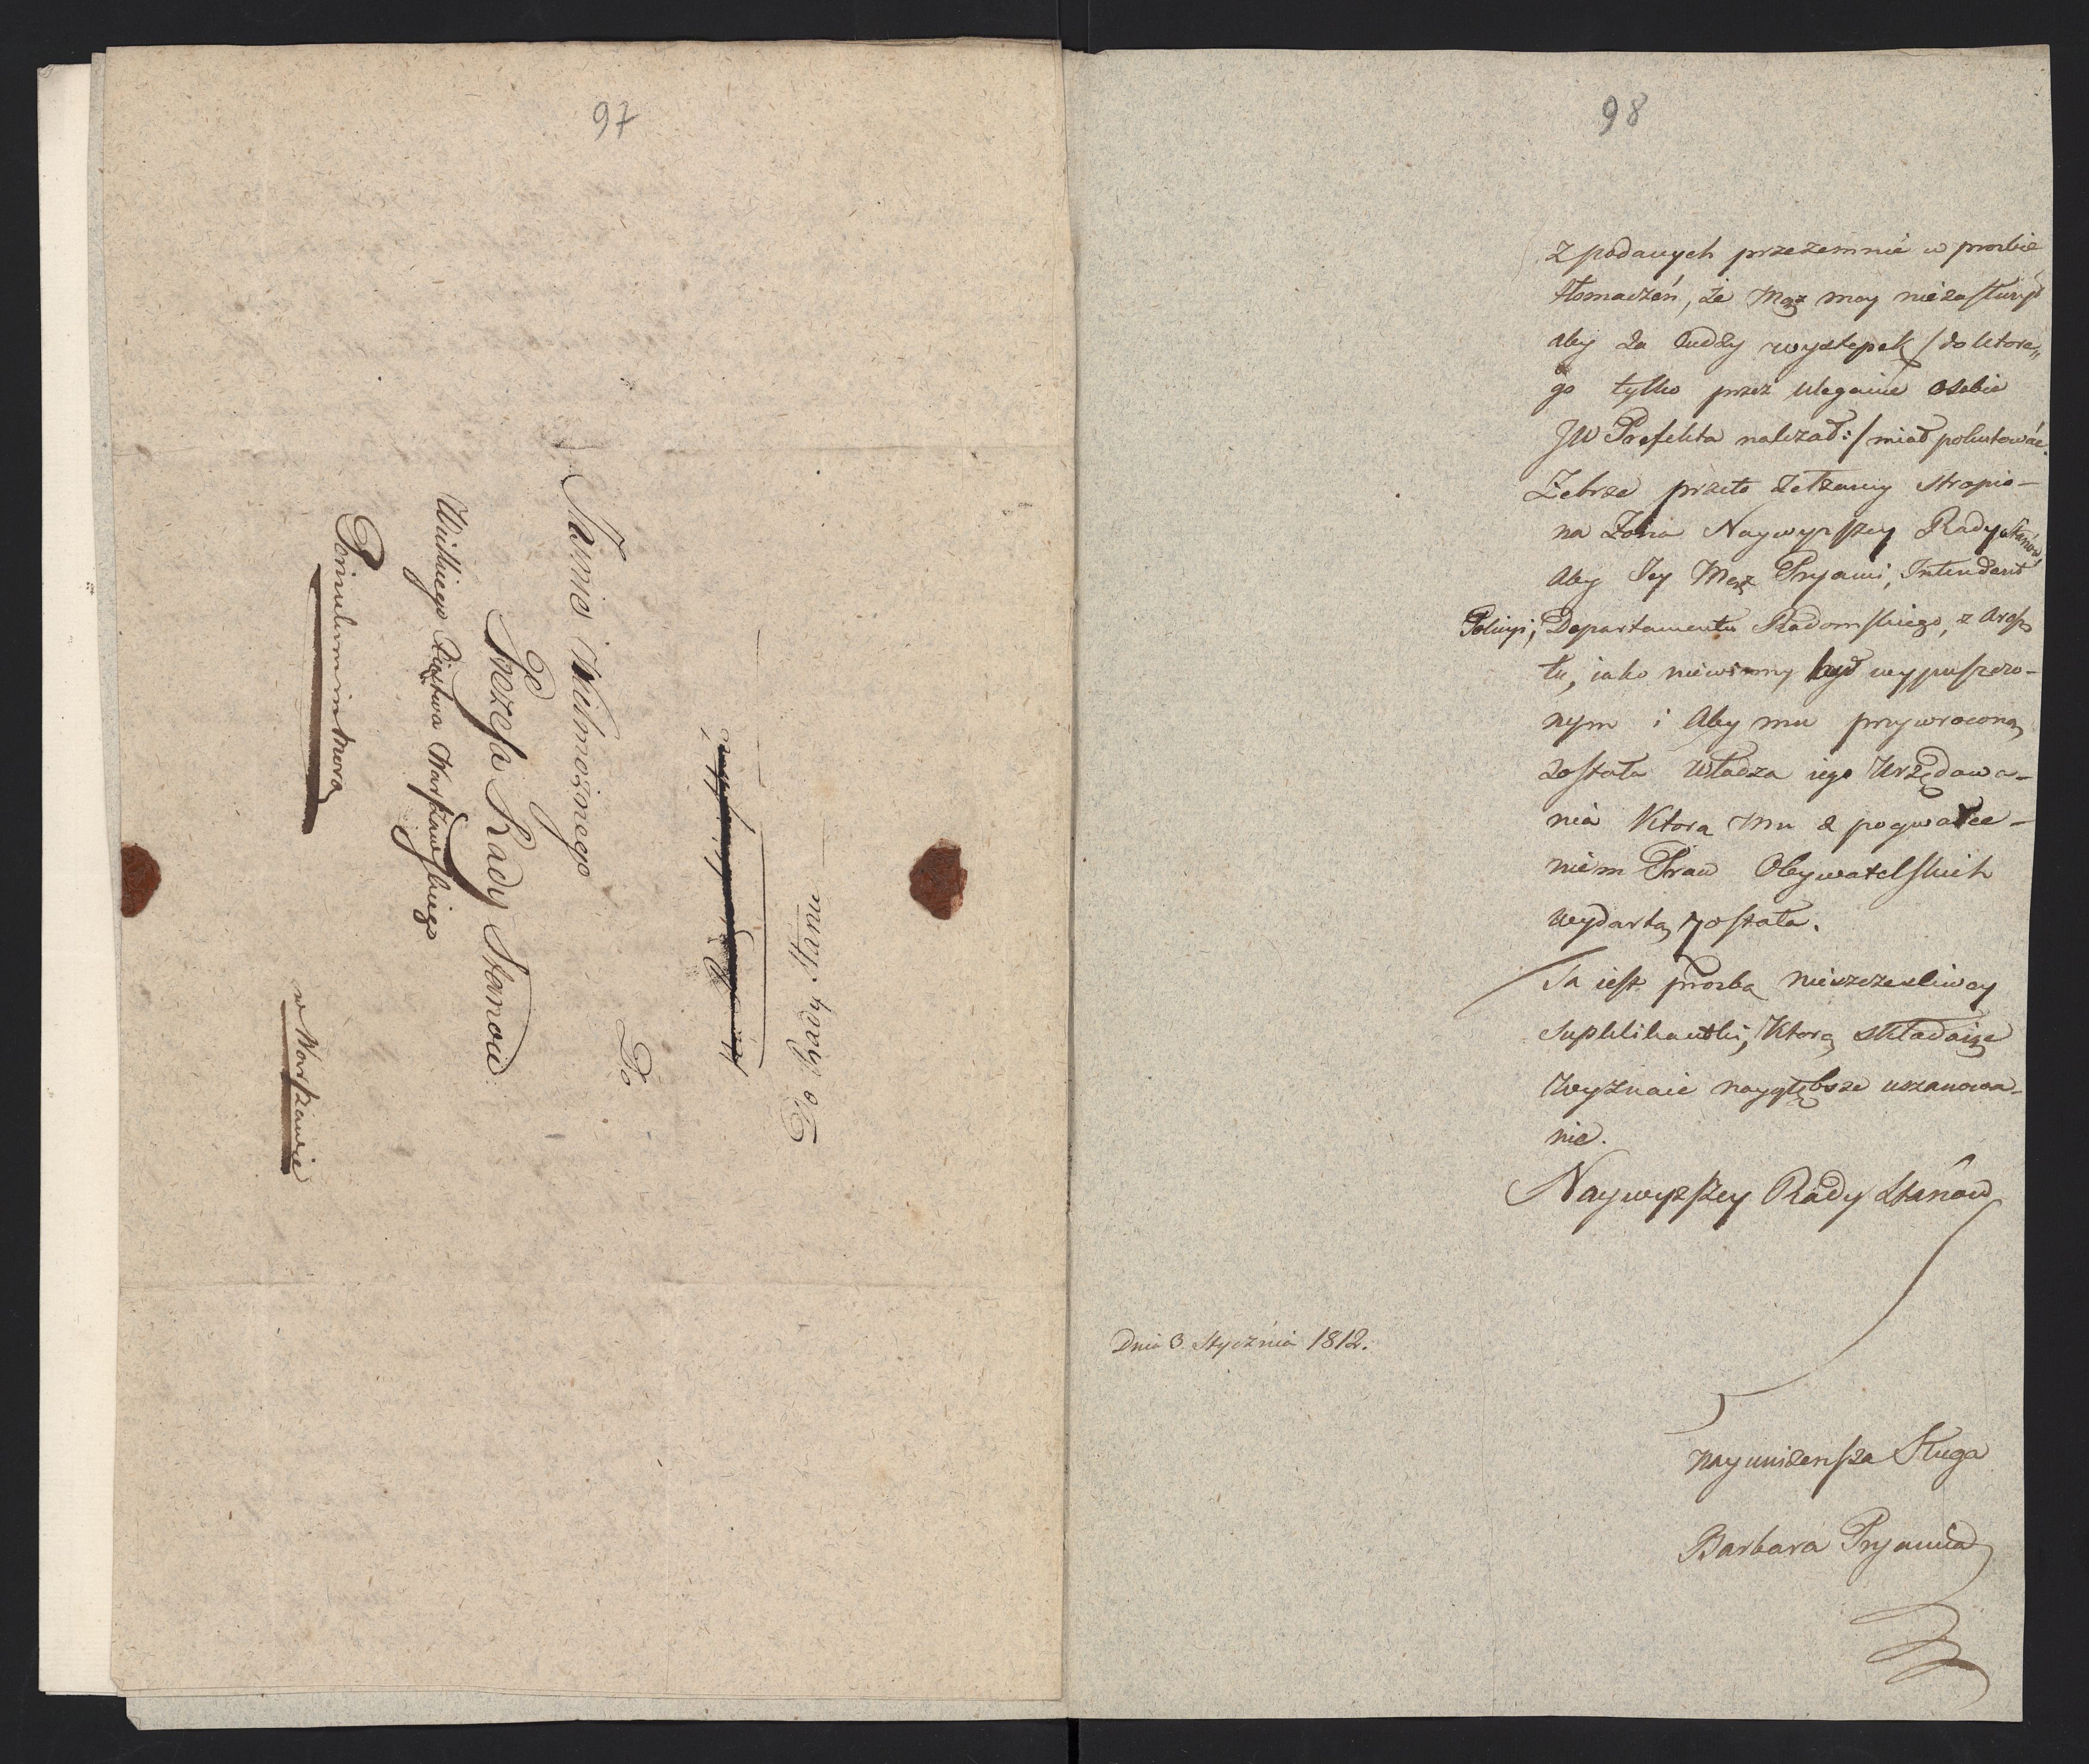 97
Do Rady Stanu
Do
Jasnie Wielmożnego
Prezesa Rady Stanow
Wielkiego Xięstwa Warszawskiego
w Warszawie
98
z podanych przezemnie w prozbie
tłomaczeń, że Mąż moy niezasłużył
aby za cudzy występek /do ktore„
go tylko przez uleganie osobie
JW Prefekta należał:/ miał pokutować.
Żebrze przeto zetzamy stropio-
na Żona Naywyższey Rady Stanów
Aby Jey Mąż Pryami, Intendent
Policyi, Departamentu Radomskiego, z Aresz
tu, iako niewinny był wypuszczo-
nym i Aby mu przywrocona
została władza iego Urzędowa-
nia Ktora mu z pogwałce-
niem Praw Obywatelskich
wydarta została.
Ta iest prozba nieszczesliwey
Suplikantki, Ktorą składaiąc
wyznaie naygłębsze uszanowa-
nie.
Naywyższey Rady Stanow
Dnia 3 Stycznia 1812.
Nayuniżensza Sługa
Barbara Pryamia